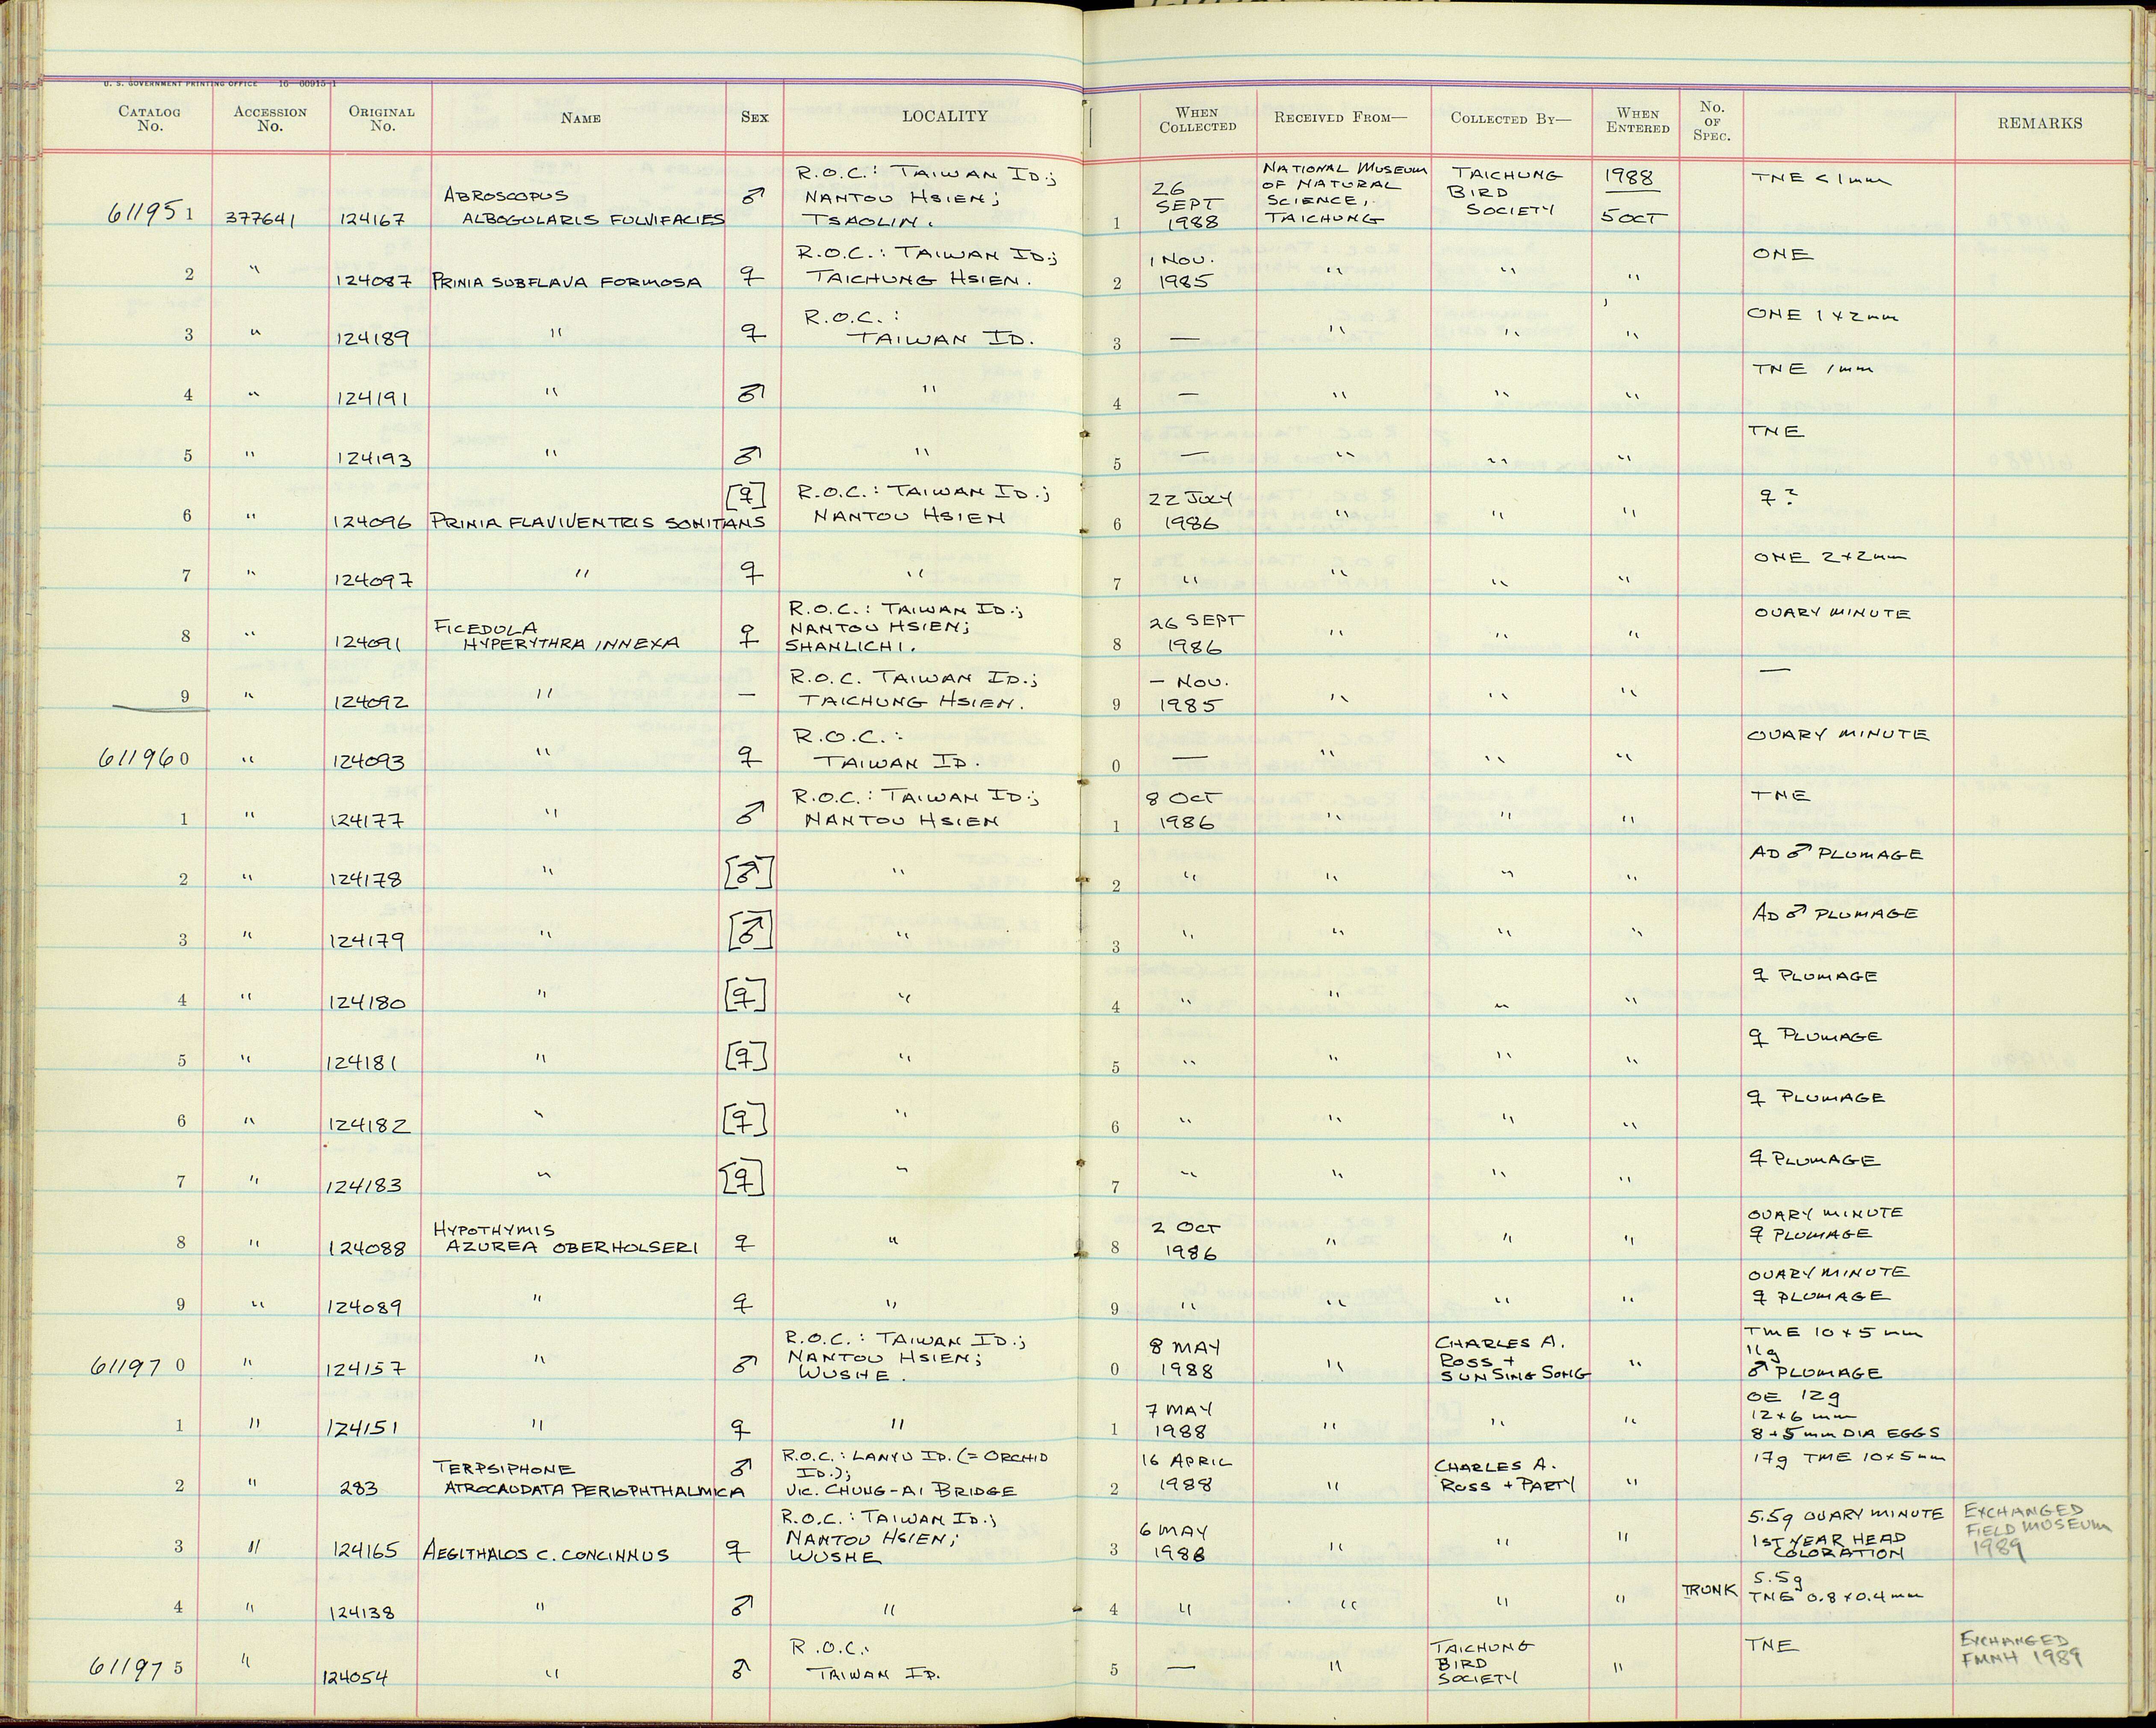 U. S. GOVERNMENT PRINTING OFFICE 16—60915-1
CATALOG No. ACCESSION No. ORIGINAL No. NAME SEX LOCALITY WHEN COLLECTED RECEIVED FROM— COLLECTED BY— WHEN ENTERED No. OF SPEC. REMARKS
611951 377641 124167 ABROSCOPUS ALBOGULARIS FULVIFACIES ♂ R.O.C.: TAIWAN ID.; NANTOU HSIEN; TSAOLIN. 1 26 SEPT 1988 NATIONAL MUSEUM OF NATURAL SCIENCE, TAICHUNG TAICHUNG BIRD SOCIETY 1988 5 OCT TNE < 1mm
2 " 124087 PRINIA SUBFLAVA FORMOSA ♀ R.O.C.: TAIWAN ID.; TAICHUNG HSIEN. 2 1 NOV. 1985 " " " ONE
3 " 124189 " ♀ R.O.C.: TAIWAN ID. 3 — " " " ONE 1x2mm
4 " 124191 " ♂ " 4 — " " " TNE 1mm
5 " 124193 " ♂ " 5 — " " " TNE
6 " 124096 PRINIA FLAVIVENTRIS SONITANS [♀] R.O.C.: TAIWAN ID.; NANTOU HSIEN 6 22 JULY 1986 " " " ♀?
7 " 124097 " ♀ " 7 " " " " ONE 2x2mm
8 " 124091 FICEDULA HYPERYTHRA INNEXA ♀ R.O.C.: TAIWAN ID.; NANTOU HSIEN; SHANLICHI. 8 26 SEPT 1986 " " " OVARY MINUTE
9 " 124092 " — R.O.C. TAIWAN ID.; TAICHUNG HSIEN. 9 — NOV. 1985 " " " —
611960 " 124093 " ♀ R.O.C.: TAIWAN ID. 0 — " " " OVARY MINUTE
1 " 124177 " ♂ R.O.C.: TAIWAN ID.; NANTOU HSIEN 1 8 OCT 1986 " " " TNE
2 " 124178 " [♂] " 2 " " " " AD ♂ PLUMAGE
3 " 124179 " [♂] " 3 " " " " AD ♂ PLUMAGE
4 " 124180 " [♀] " 4 " " " " ♀ PLUMAGE
5 " 124181 " [♀] " 5 " " " " ♀ PLUMAGE
6 " 124182 " [♀] " 6 " " " " ♀ PLUMAGE
7 " 124183 " [♀] " 7 " " " " ♀ PLUMAGE
8 " 124088 HYPOTHYMIS AZUREA OBERHOLSERI ♀ " 8 2 OCT 1986 " " " OVARY MINUTE ♀ PLUMAGE
9 " 124089 " ♀ " 9 " " " " OVARY MINUTE ♀ PLUMAGE
611970 " 124157 " ♂ R.O.C.: TAIWAN ID.; NANTOU HSIEN; WUSHE. 0 8 MAY 1988 " CHARLES A. ROSS + SUN SING SONG " TME 10x5 mm 11g ♂ PLUMAGE
1 " 124151 " ♀ " 1 7 MAY 1988 " " " OE 12g 12x6 mm 8+5mm DIA EGGS
2 " 283 TERPSIPHONE ATROCAUDATA PERIOPHTHALMICA ♂ R.O.C.: LANYU ID. (= ORCHID ID.); VIC. CHUNG-AI BRIDGE 2 16 APRIL 1988 " CHARLES A. ROSS + PARTY " 17g TME 10x5mm
3 " 124165 AEGITHALOS C. CONCINNUS ♀ R.O.C.: TAIWAN ID.; NANTOU HSIEN; WUSHE 3 6 MAY 1988 " " " 5.5g OVARY MINUTE 1ST YEAR HEAD COLORATION EXCHANGED FIELD MUSEUM 1989
4 " 124138 " ♂ " 4 " " " " TRUNK 5.5g TNE 0.8x0.4mm
611975 " 124054 " ♂ R.O.C. TAIWAN ID. 5 — " TAICHUNG BIRD SOCIETY " TNE EXCHANGED FMNH 1989